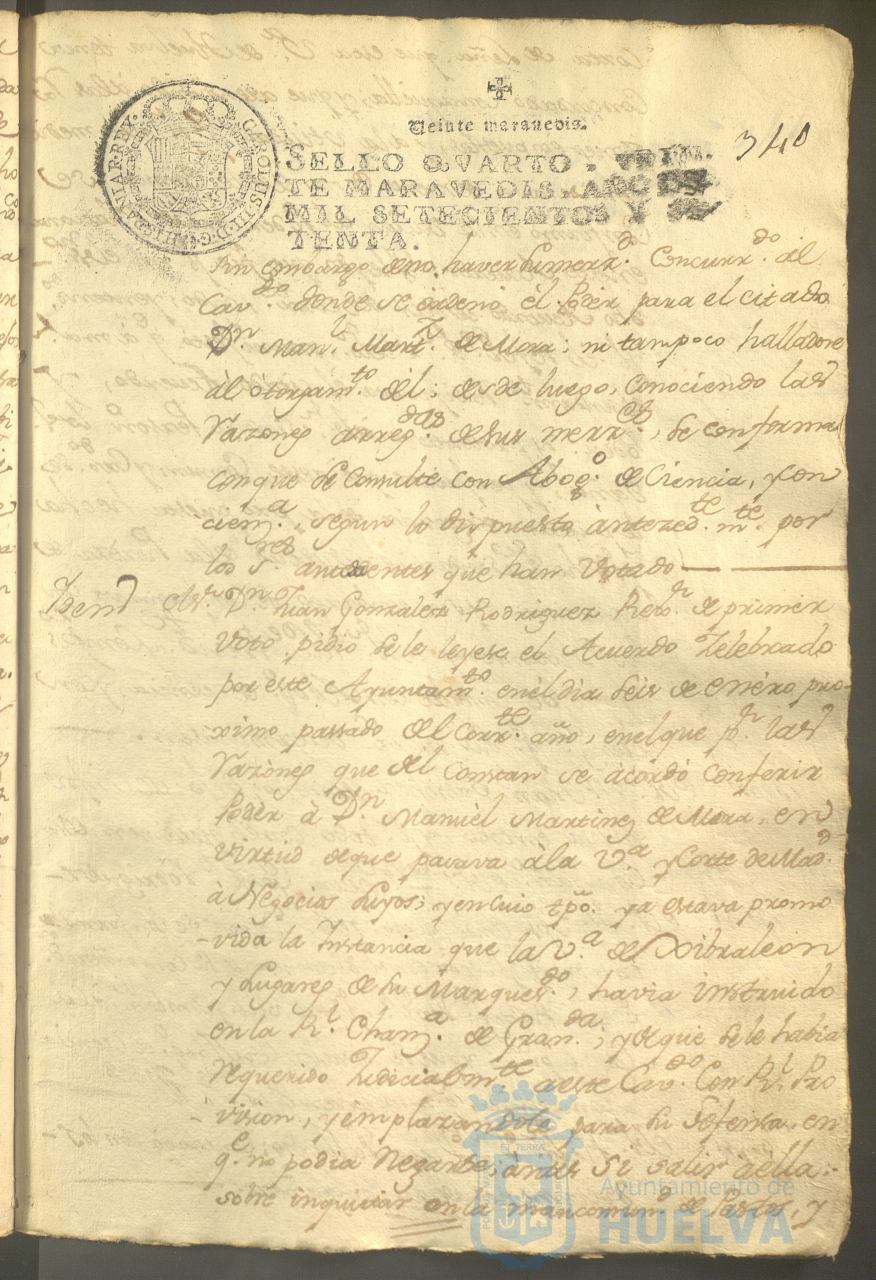 CAROLUS III D G HISPANIAR REX
Veinte maravedis.
340
SELLO QVARTO, VEIN
TE MARAVEDIS, AÑO DE
MIL SETECIENTOS Y SE
TENTA.
sin embargo de no haver su merzd. Concurrdo. al
Cavdo. donde se ordenó el Podér para el citado
Dn. Manl. Martz. de Mora; ni tampoco halladose
àl otorgamto. dél; desde luego, conociendo las
razones arregdas. de sus merzes., se conforma
con que se Consulte con Abogo. de Ciencia, y con
ciema., segun lo dispuesto àntezedtemte. por
los Sres. antecedentes que han Votado
Iden El Sr. Dn. Juan Gonzalez Rodriguez Rexor. de primer
Voto pidio se le leyese el Acuerdo Zelebrado
por este Ayuntamto. en el dia seis de enéro pro-
ximo passado del corrte. año, en el que pr. las
razònes que dél Constan se àcordó conferir
Podér à Dn. Manuèl Martinez de Mora, en
virtud de que pasava à la Va. y Corte de Madd.
à Negocios suyos; y en cuio tpo. ya estava promo
-vida la Instancia que la Va. de Xibraleon
y Lugares de su Marquesdo., havia instruido
en la Rl. Chanza. de Granda.; y de que se le havia
requerido Judicialmte. a este Cavdo. Con Rl. Pro
vision, y emplazandole para su defensa, en
qe. no podia Negarse; àntes si salir a ella:
sobre inquietar en la mancomund. de Pastos, y
Ayuntamiento de
HUELVA